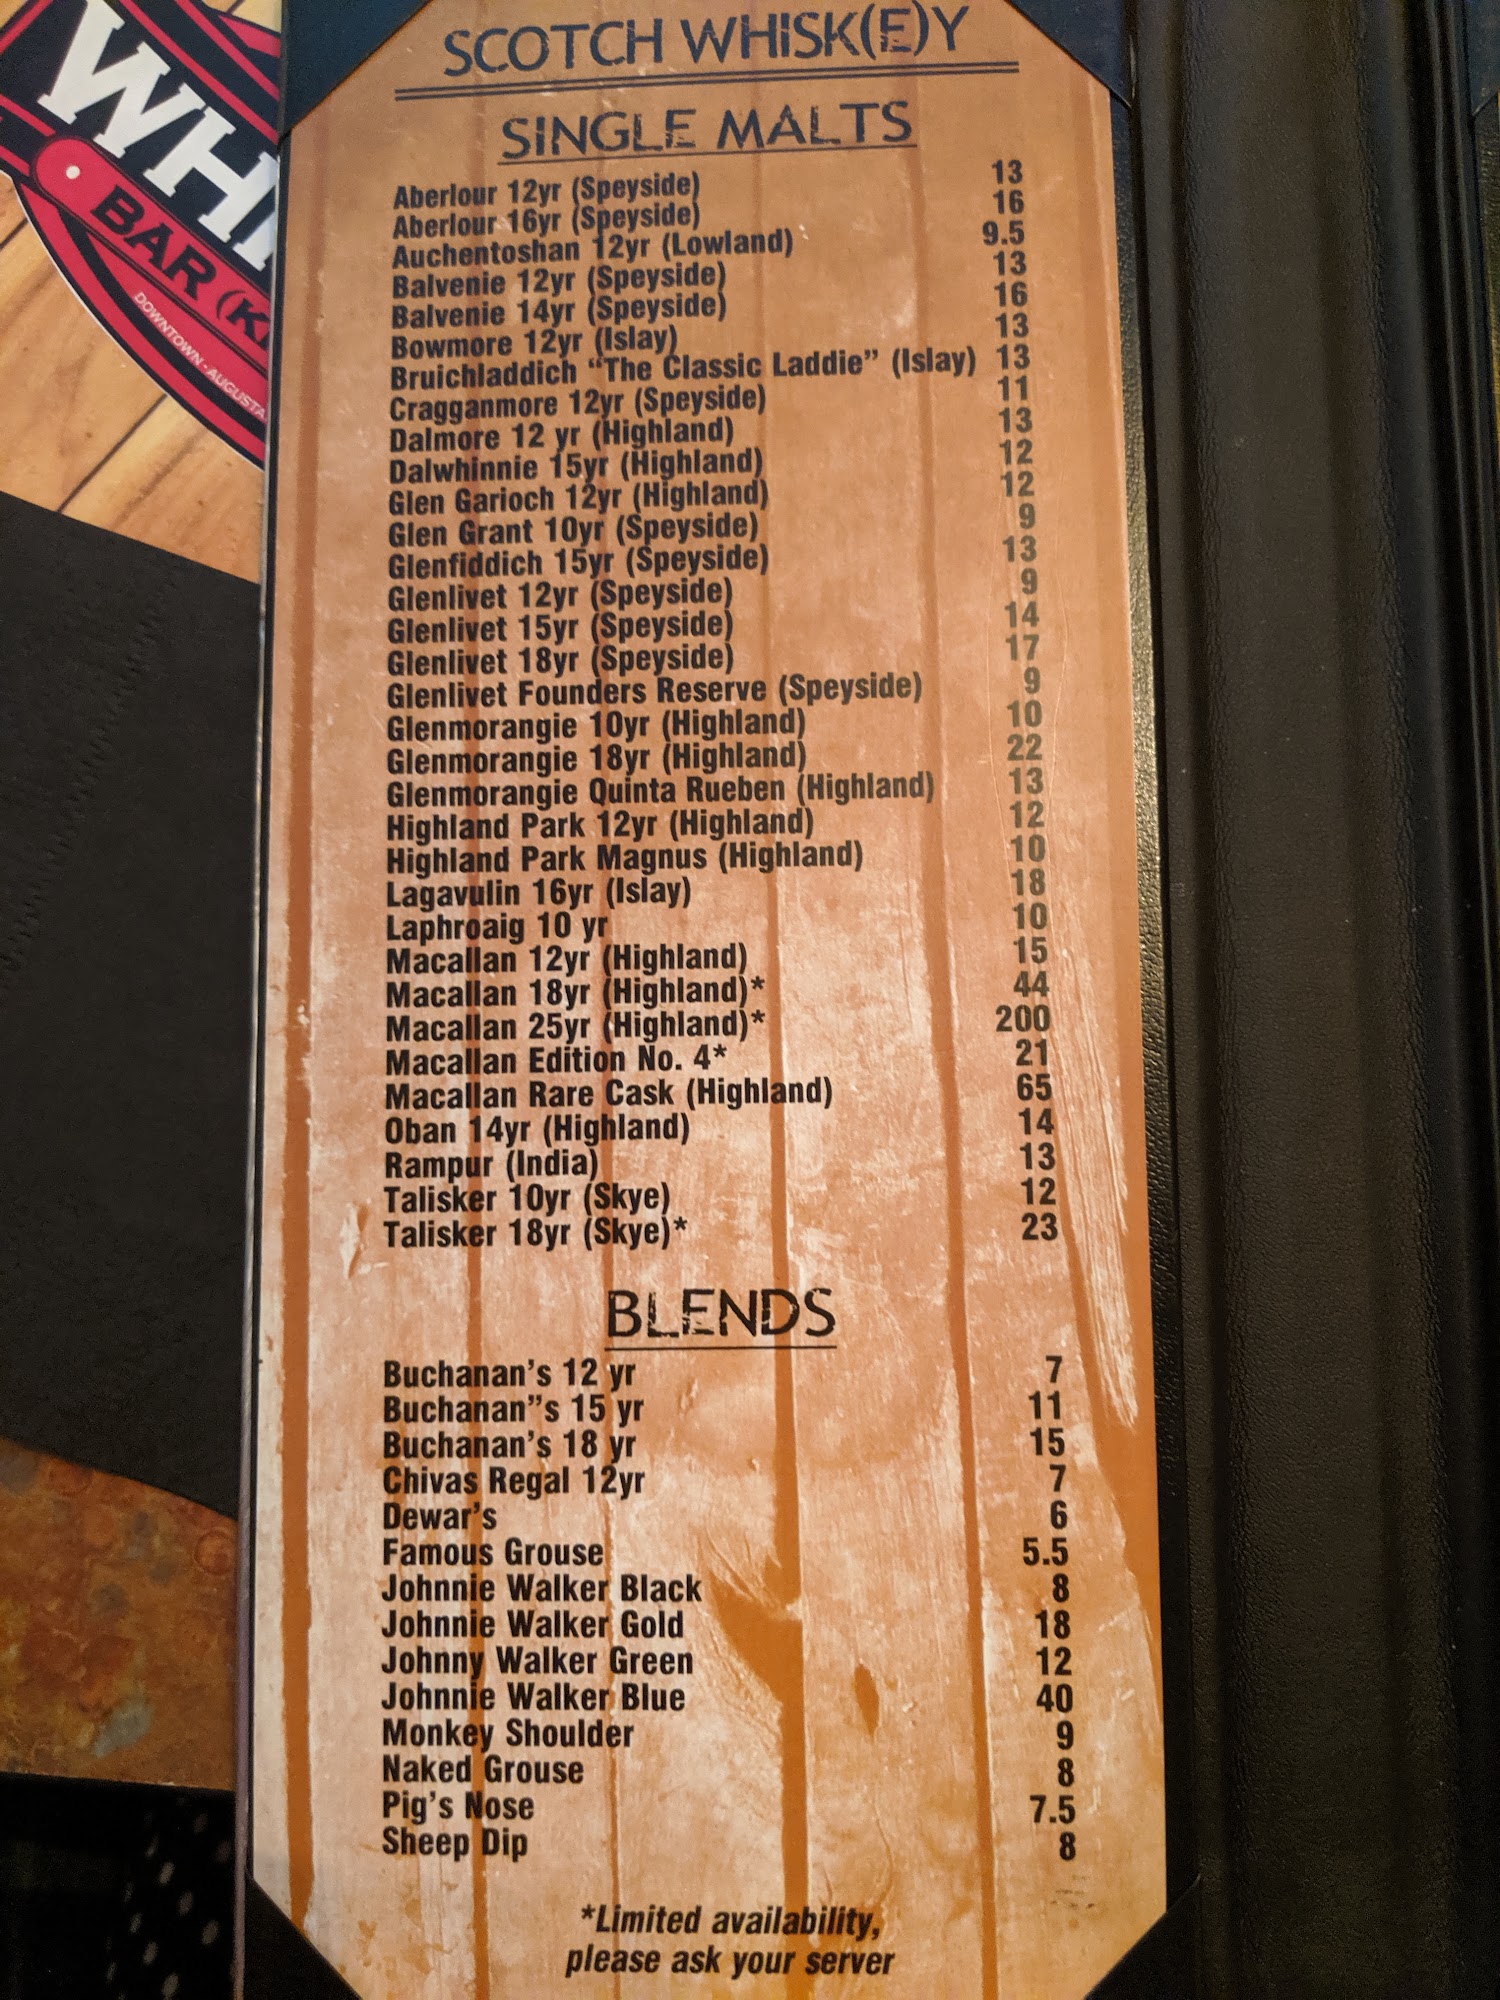 WH
BAR (K
DOWNTOWN - AUGUSTA
SCOTCH WHISK(E)Y
SINGLE MALTS
Aberlour 12yr (Speyside) 13
Aberlour 16yr (Speyside) 16
Auchentoshan 12yr (Lowland) 9.5
Balvenie 12yr (Speyside) 13
Balvenie 14yr (Speyside) 16
Bowmore 12yr (Islay) 13
Bruichladdich “The Classic Laddie” (Islay) 13
Cragganmore 12yr (Speyside) 11
Dalmore 12 yr (Highland) 13
Dalwhinnie 15yr (Highland) 12
Glen Garioch 12yr (Highland) 12
Glen Grant 10yr (Speyside) 9
Glenfiddich 15yr (Speyside) 13
Glenlivet 12yr (Speyside) 9
Glenlivet 15yr (Speyside) 14
Glenlivet 18yr (Speyside) 17
Glenlivet Founders Reserve (Speyside) 9
Glenmorangie 10yr (Highland) 10
Glenmorangie 18yr (Highland) 22
Glenmorangie Quinta Rueben (Highland) 13
Highland Park 12yr (Highland) 12
Highland Park Magnus (Highland) 10
Lagavulin 16yr (Islay) 18
Laphroaig 10 yr 10
Macallan 12yr (Highland) 15
Macallan 18yr (Highland)* 44
Macallan 25yr (Highland)* 200
Macallan Edition No. 4* 21
Macallan Rare Cask (Highland) 65
Oban 14yr (Highland) 14
Rampur (India) 13
Talisker 10yr (Skye) 12
Talisker 18yr (Skye)* 23
BLENDS
Buchanan’s 12 yr 7
Buchanan”s 15 yr 11
Buchanan’s 18 yr 15
Chivas Regal 12yr 7
Dewar’s 6
Famous Grouse 5.5
Johnnie Walker Black 8
Johnnie Walker Gold 18
Johnny Walker Green 12
Johnnie Walker Blue 40
Monkey Shoulder 9
Naked Grouse 8
Pig’s Nose 7.5
Sheep Dip 8
*Limited availability,
please ask your server